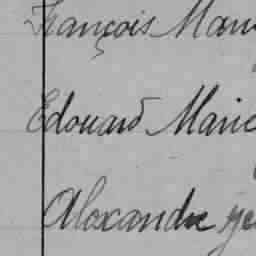 François Mari
Edouard Marie
Alexandre